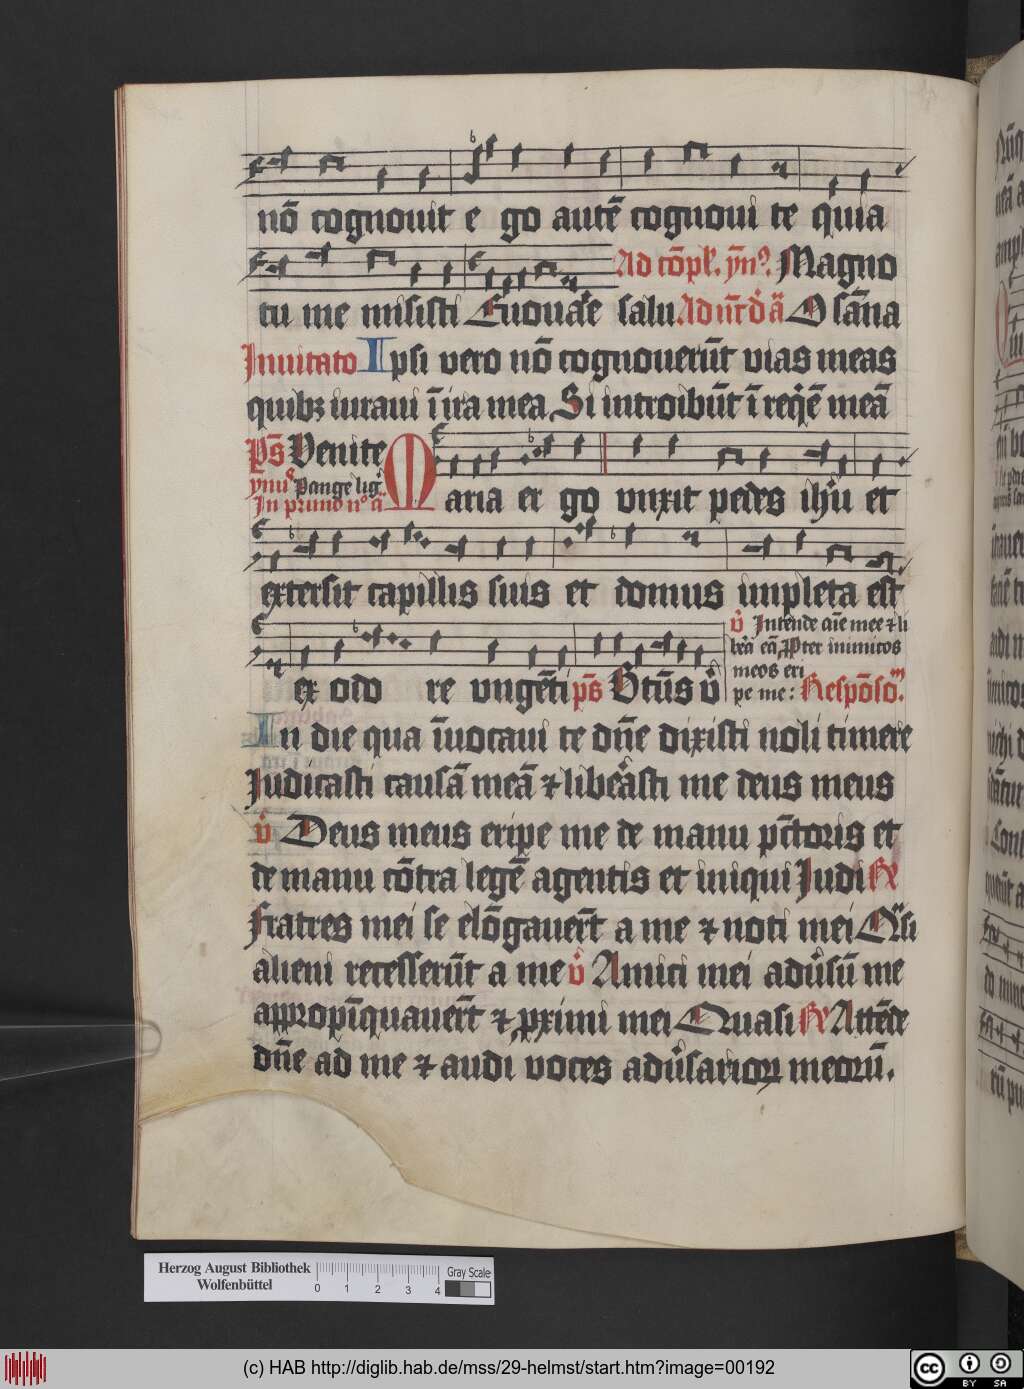 nō cognouit e go autē cognoui te quia
Ad cōpl. ỹnꝰ. Magno
tu me misisti Euouae salu Ad nr̄ dō ā Osāna
Inuitato Ipsi vero nō cognouerūt vias meas
quibꝫ iuraui ī ira mea Si introibūt ī reqē meā
Ps̄ Venite
ỹnuſ Pange lig
In primo nº ā
Maria er go vnxit pedes ihū et
extersit capillis suis et domus impleta est
v̄ Intende aīe mee ⁊ li
bera eā Ꝓpter inimicos
meos eri
ex odo re vngēti ps̄ Btūs v̄ pe me: Respōso.
In die qua īuocaui te dn̄e dixisti noli timere
Iudicasti causā meā ⁊ liberasti me deus meus
v̄ Deus meus eripe me de manu pc̄toris et
de manu cōtra legē agentis et iniqui Iudi Re
Fratres mei se elōgauerūt a me ⁊ noti mei Qsi
alieni recesserūt a me v̄ Amici mei adūsū me
appropīquauerūt ⁊ ꝓximi mei Quasi Re Attēde
dn̄e ad me ⁊ audi voces adūsarioꝝ meorū.
Herzog August Bibliothek
Wolfenbüttel
0 1 2 3 4
Gray Scale
(c) HAB http://diglib.hab.de/mss/29-helmst/start.htm?image=00192
cc BY SA